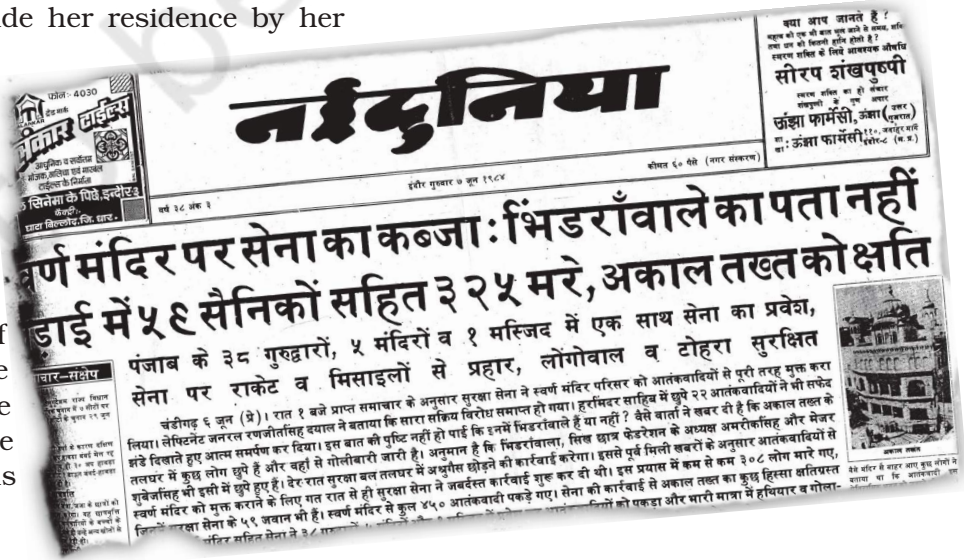 de her residence by her
फोन:- 4030
ट्रेड मार्क
टाईल्स
आधुनिक व सर्वोत्तम
मोजक, गलिचा एवं मारबल
टाईल्स के निर्माता
सिनेमा के पिछे, इन्दौर-३
फैक्ट्री:-
घाटा बिल्लोद, जि. धार.
नईदुनिया
वर्ष ३८ अंक ३
इंदौर गुरुवार ७ जून १९८४
कीमत ६० पैसे (नगर संस्करण)
क्या आप जानते हैं ?
स्मरण शक्ति के लिये आवश्यक औषधि
सीरप शंखपुष्पी
स्मरण शक्ति का ही संचार
शंखपुष्पी के गुण अपार
ऊंझा फार्मेसी, ऊंझा (उत्तर गुजरात)
ऊंझा फार्मेसी, ११०, जवाहर मार्ग इंदौर-८ (म. प्र.)
वर्ण मंदिर पर सेना का कब्जा : भिंडराँवाले का पता नहीं
ड़ाई में ५९ सैनिकों सहित ३२५ मरे, अकाल तख्त को क्षति
पंजाब के ३८ गुरुद्वारों, ५ मंदिरों व १ मस्जिद में एक साथ सेना का प्रवेश,
सेना पर राकेट व मिसाइलों से प्रहार, लोंगोवाल व टोहरा सुरक्षित
f
e
e
e
s
चार-संक्षेप
चंडीगढ़ ६ जून (प्रे)। रात १ बजे प्राप्त समाचार के अनुसार सुरक्षा सेना ने स्वर्ण मंदिर परिसर को आतंकवादियों से पूरी तरह मुक्त करा
लिया। लेफ्टिनेंट जनरल रणजीतसिंह दयाल ने बताया कि सारा सक्रिय विरोध समाप्त हो गया। हरमिंदर साहिब में छुपे २२ आतंकवादियों ने भी सफेद
झंडे दिखाते हुए आत्म समर्पण कर दिया। इस बात की पुष्टि नहीं हो पाई कि इनमें भिंडरांवाले हैं या नहीं ? वैसे वार्ता ने खबर दी है कि अकाल तख्त के
तलघर में कुछ लोग छुपे हैं और वहाँ से गोलीबारी जारी है। अनुमान है कि भिंडरांवाला, सिख छात्र फेडरेशन के अध्यक्ष अमरीकसिंह और मेजर
शुबेगसिंह भी इसी में छुपे हुए हैं। देर रात सुरक्षा बल तलघर में अश्रुगैस छोड़ने की कार्रवाई करेगा। इससे पूर्व मिली खबरों के अनुसार आतंकवादियों से
स्वर्ण मंदिर को मुक्त कराने के लिए गत रात से ही सुरक्षा सेना ने जबर्दस्त कार्रवाई शुरू कर दी थी। इस प्रयास में कम से कम ३०८ लोग मारे गए,
सुरक्षा सेना के ५९ जवान भी हैं। स्वर्ण मंदिर से कुल ४५० आतंकवादी पकड़े गए। सेना की कार्रवाई से अकाल तख्त का कुछ हिस्सा क्षतिग्रस्त
को पकड़ा और भारी मात्रा में हथियार व गोला-
अकाल तख्त